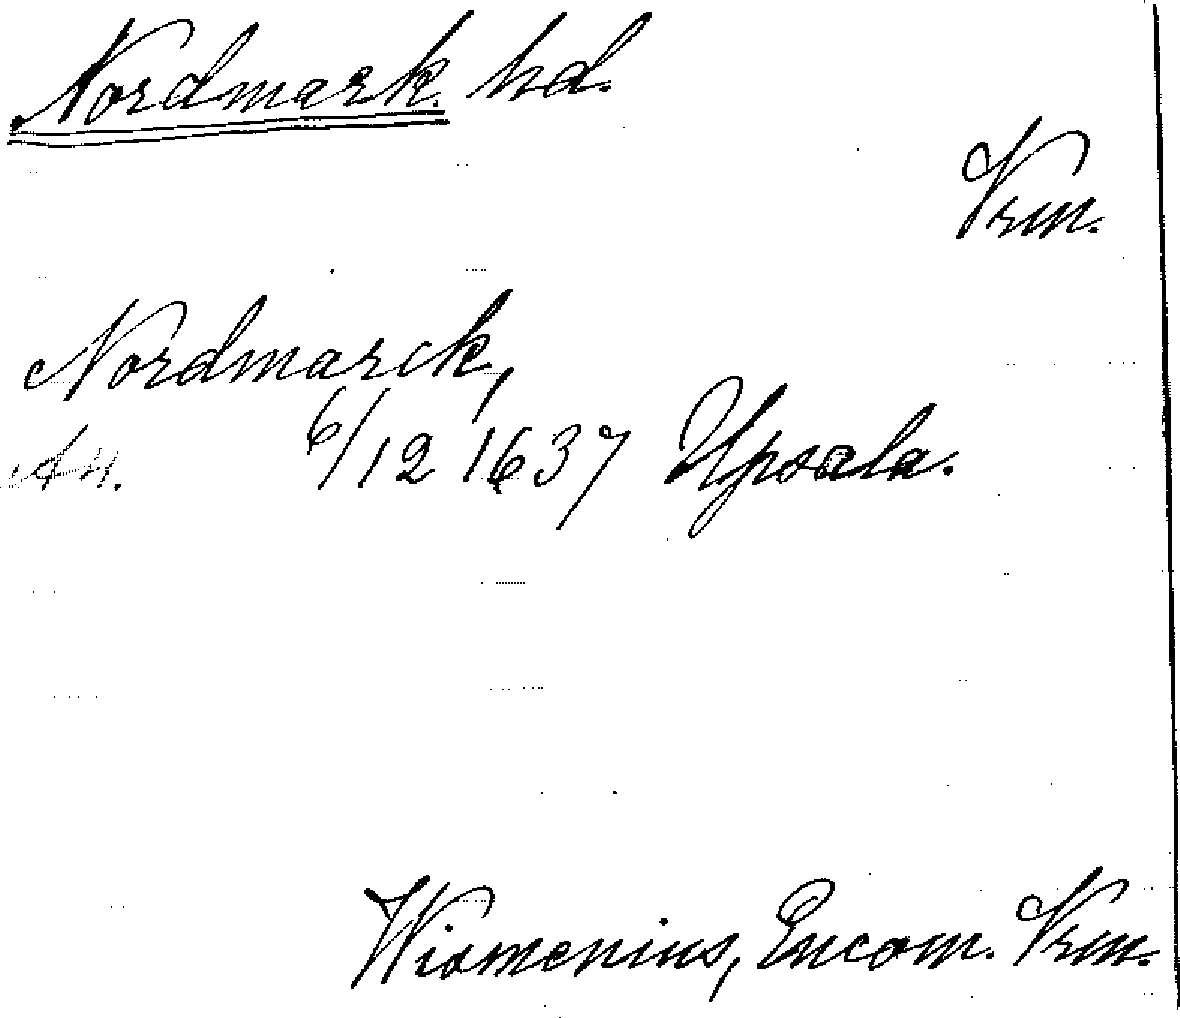 Nordmark hd.
Vrm.
Nordmarck,
6/12 1637 Upsala.
Wismenius, Encom. Vrm.